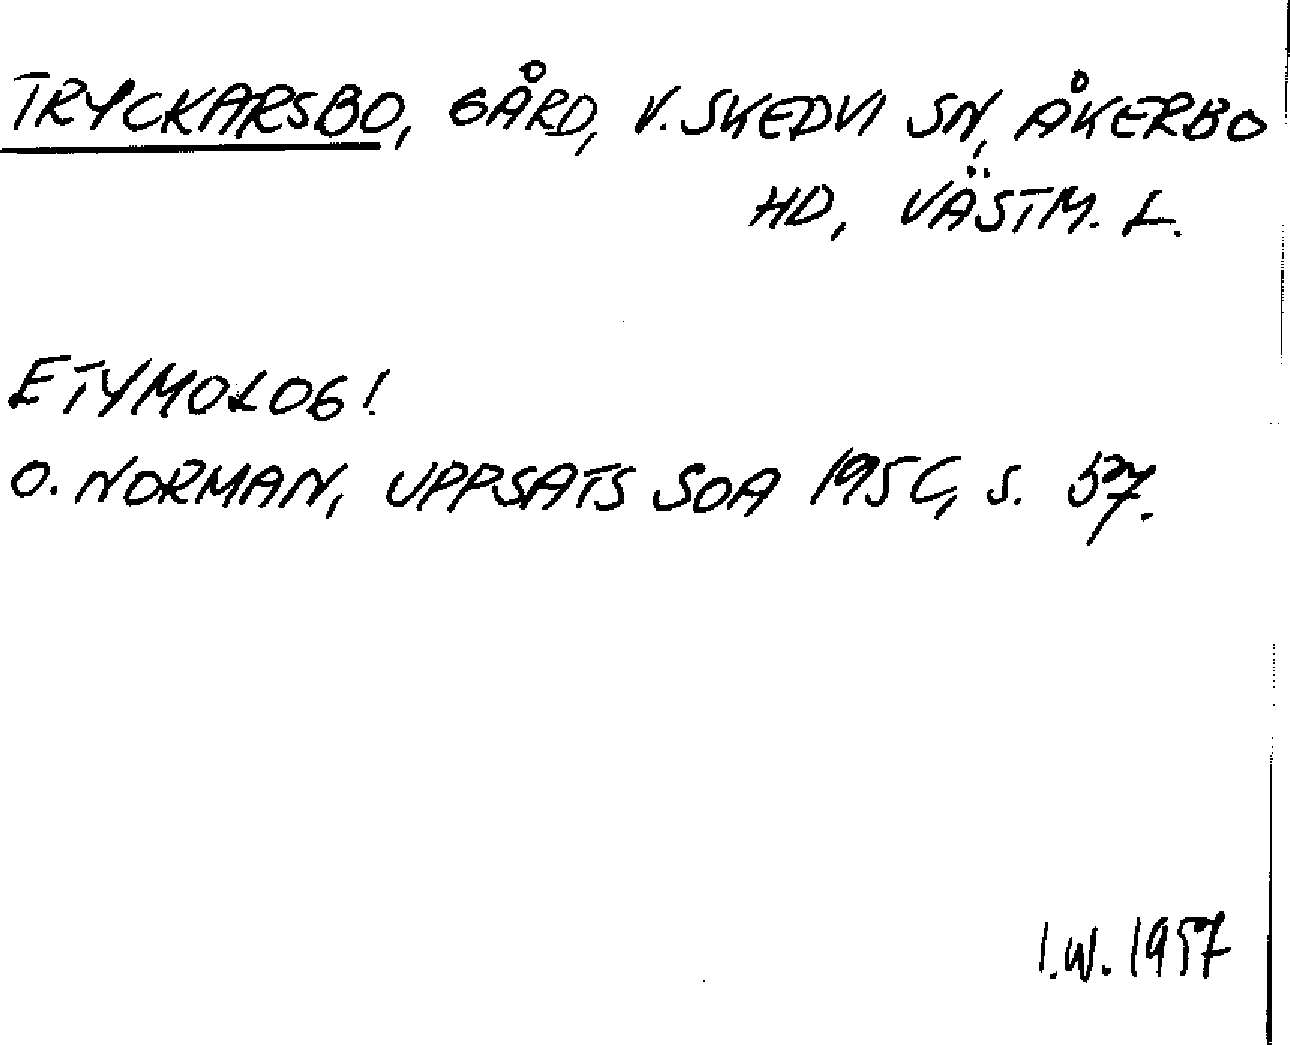 TRYCKARSBO, GÅRD, V. SKEDVI SN, ÅKERBO
HD, VÄSTM. L.
ETYMOLOGI.
O. NORMAN, UPPSATS SOA 1956, S. 57.
I.W. 1957